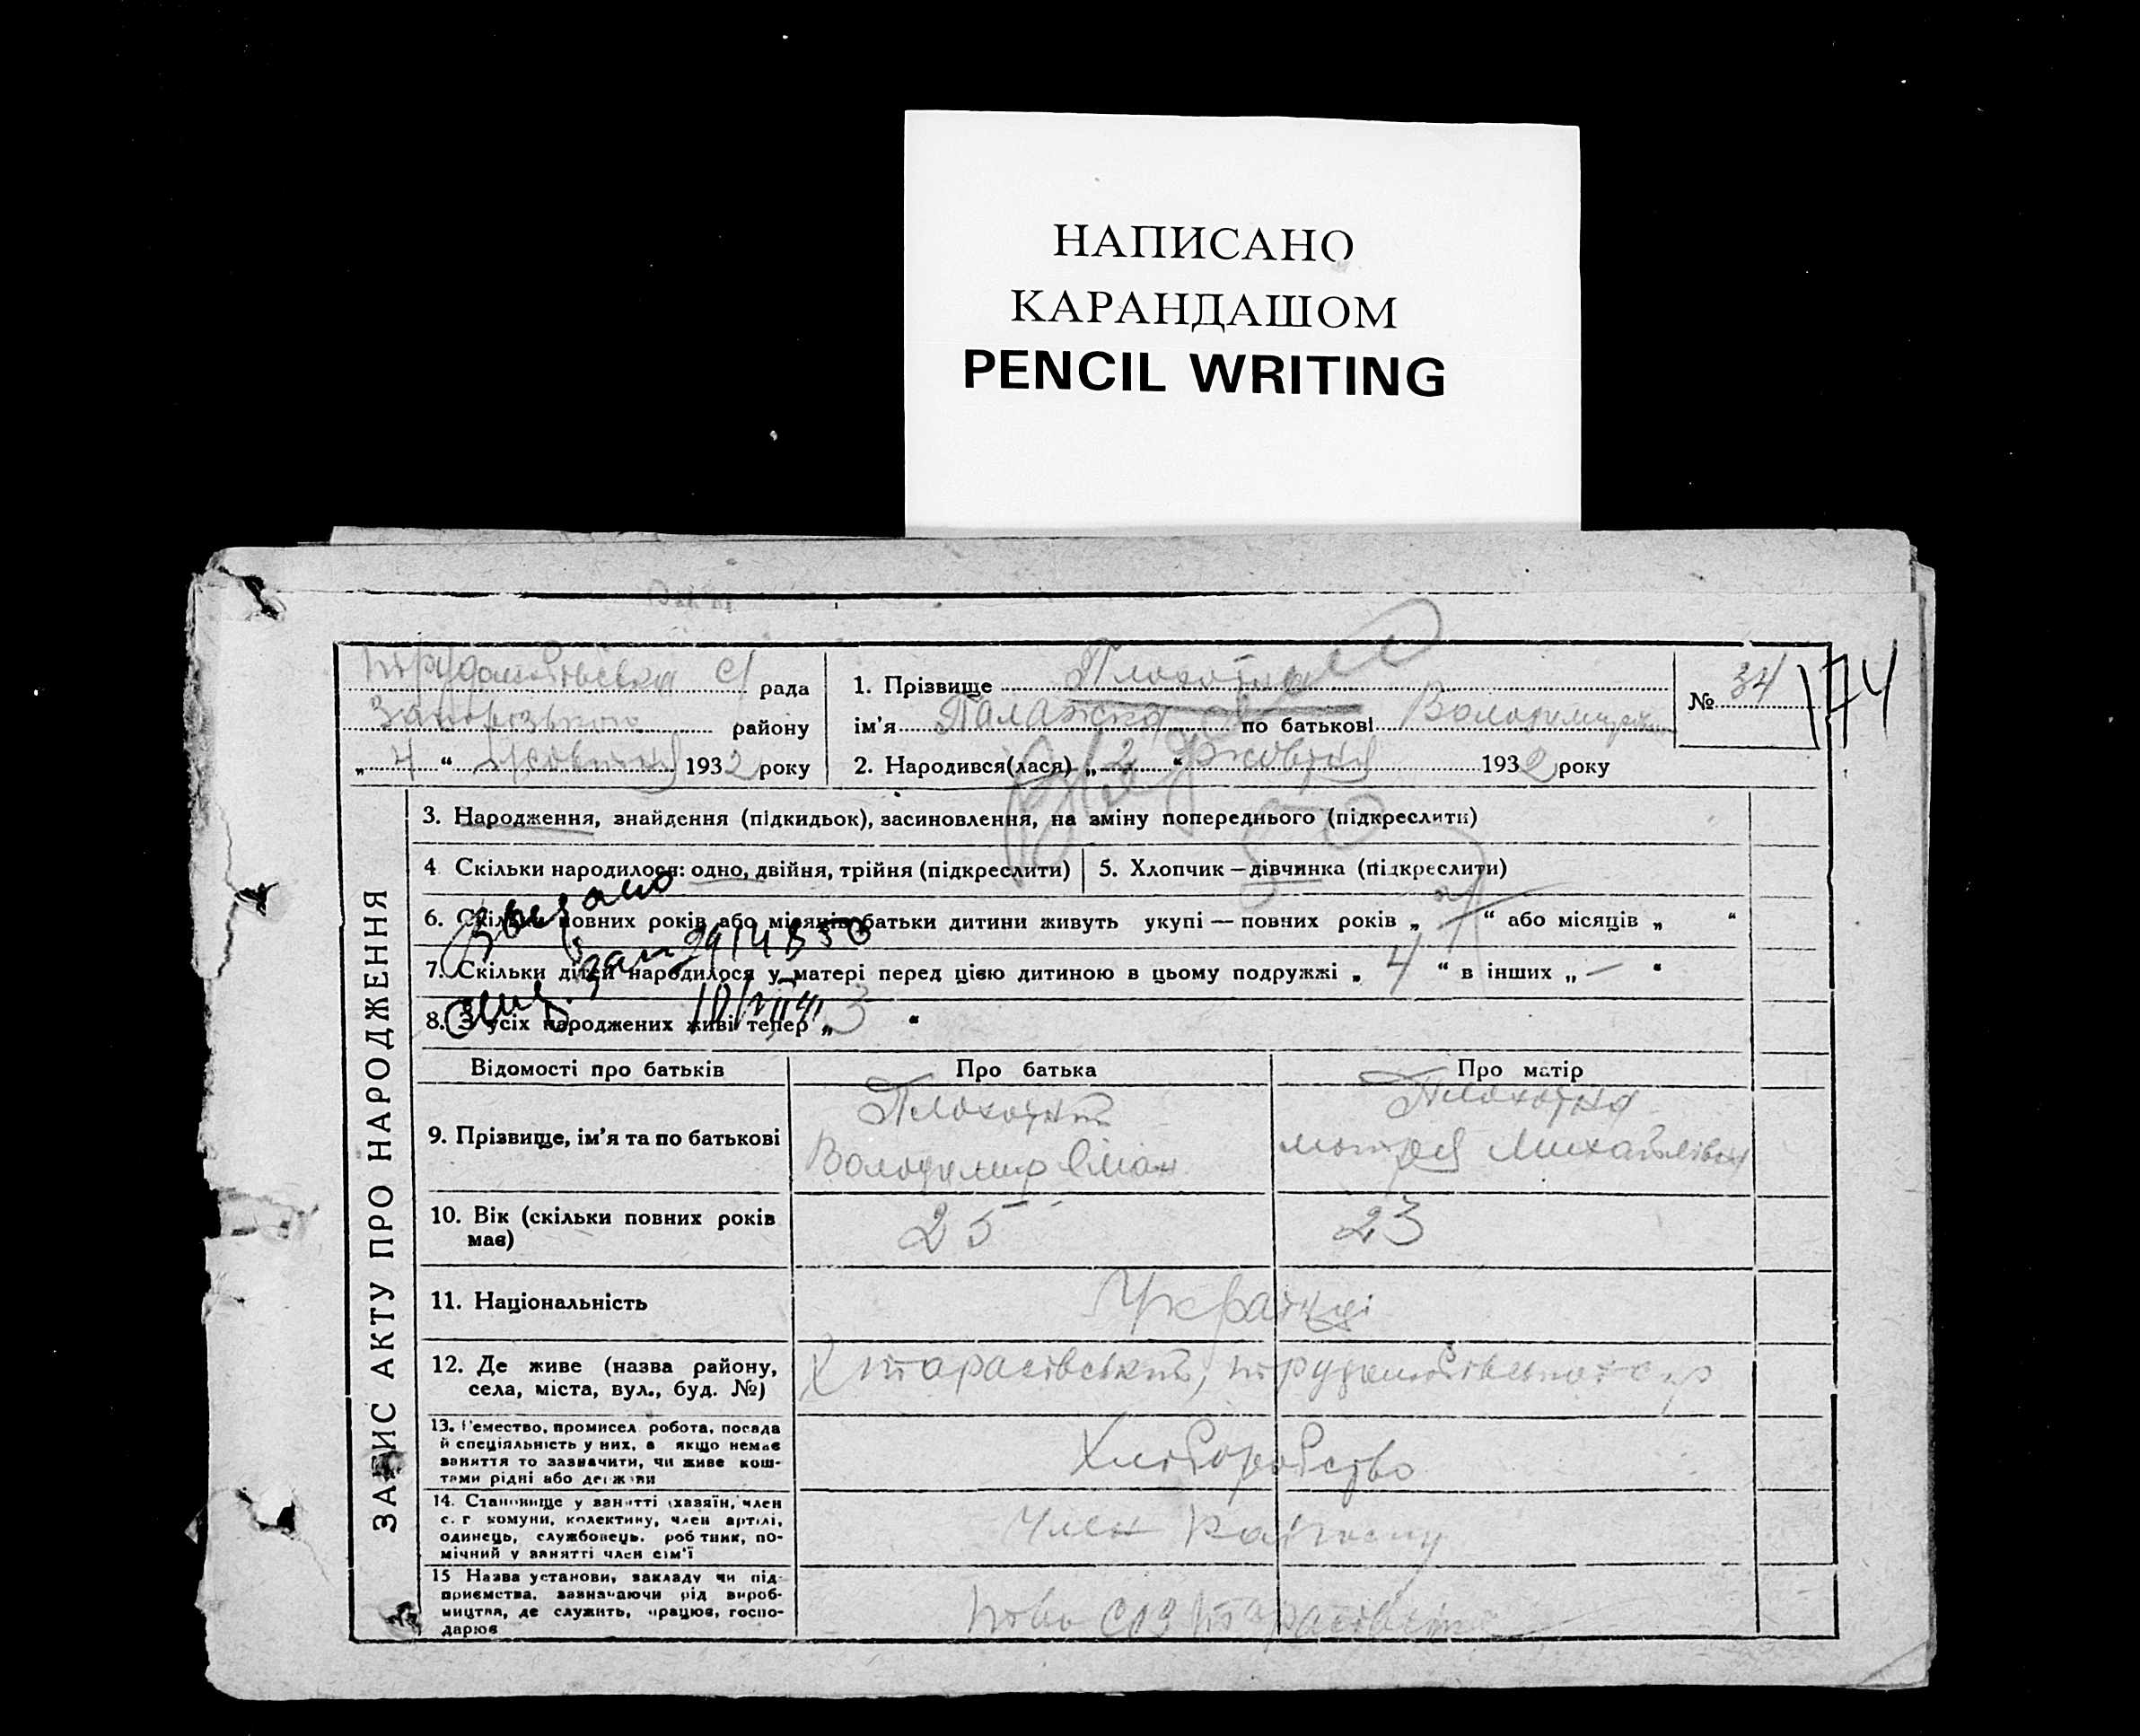 НАПИСАНО
КАРАНДАШОМ
PENCIL WRITING
рада
району
„ 4 “ жовтня 1932 року
1. Прізвище Плохотна
ім’я Палажка по батькові Володимирівна
2. Народився(лася) „ 2 “ жовтня 1932 року
№ 34
174
ЗАПИС АКТУ ПРО НАРОДЖЕННЯ
3. Народження, знайдення (підкидьок), засиновлення, на зміну попереднього (підкреслити)
4 Скільки народилося: одно, двійня, трійня (підкреслити)
5. Хлопчик – дівчинка (підкреслити)
6. Скільки повних років або місяців батьки дитини живуть укупі — повних років „ “ або місяців „ “
7. Скільки дітей народилося у матері перед цією дитиною в цьому подружжі „ 4 “ в інших „ — “
8. З усіх народжених живі тепер „ 3 “
Відомості про батьків
Про батька
Про матір
9. Прізвище, ім’я та по батькові
Плохотний
Володимир
Плохотна
Мотря Михайлівна
10. Вік (скільки повних років має)
25
23
11. Національність
Українці
12. Де живе (назва району,
села, міста, вул., буд. №)
Х Тарасівський,
13. Ремество, промисел робота, посада
й спеціяльність у них, а якщо немає
заняття то зазначити, чи живе кош-
тами рідні або держави
Хліборобство
14. Становище у занятті (хазяїн, член
с. г комуни, колективу, член артілі,
одинець, службовець, робтник, по-
мічний у занятті член сім’ї
Член
15 Назва установи, закладу чи під-
приємства, зазначаючи рід вироб-
ництва, де служить, працює, госпо-
дарює